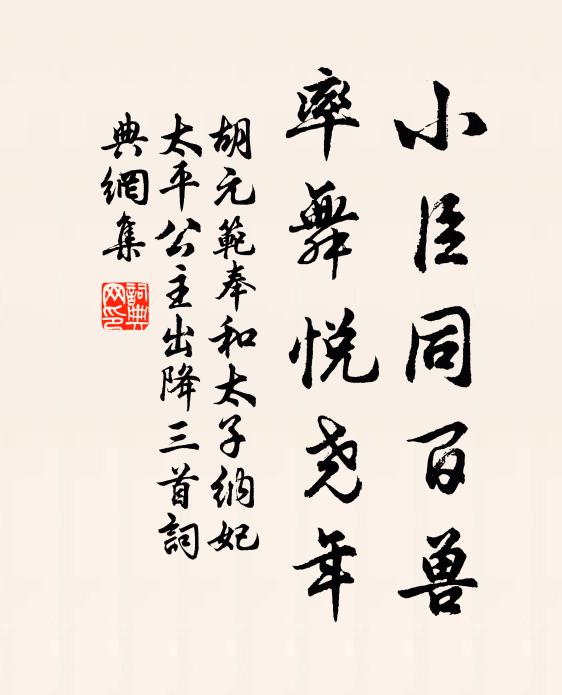 小臣同百兽
率舞悦尧年
胡元範奉和太子納妃
太平公主出降三首詞
典網集
詞典网印